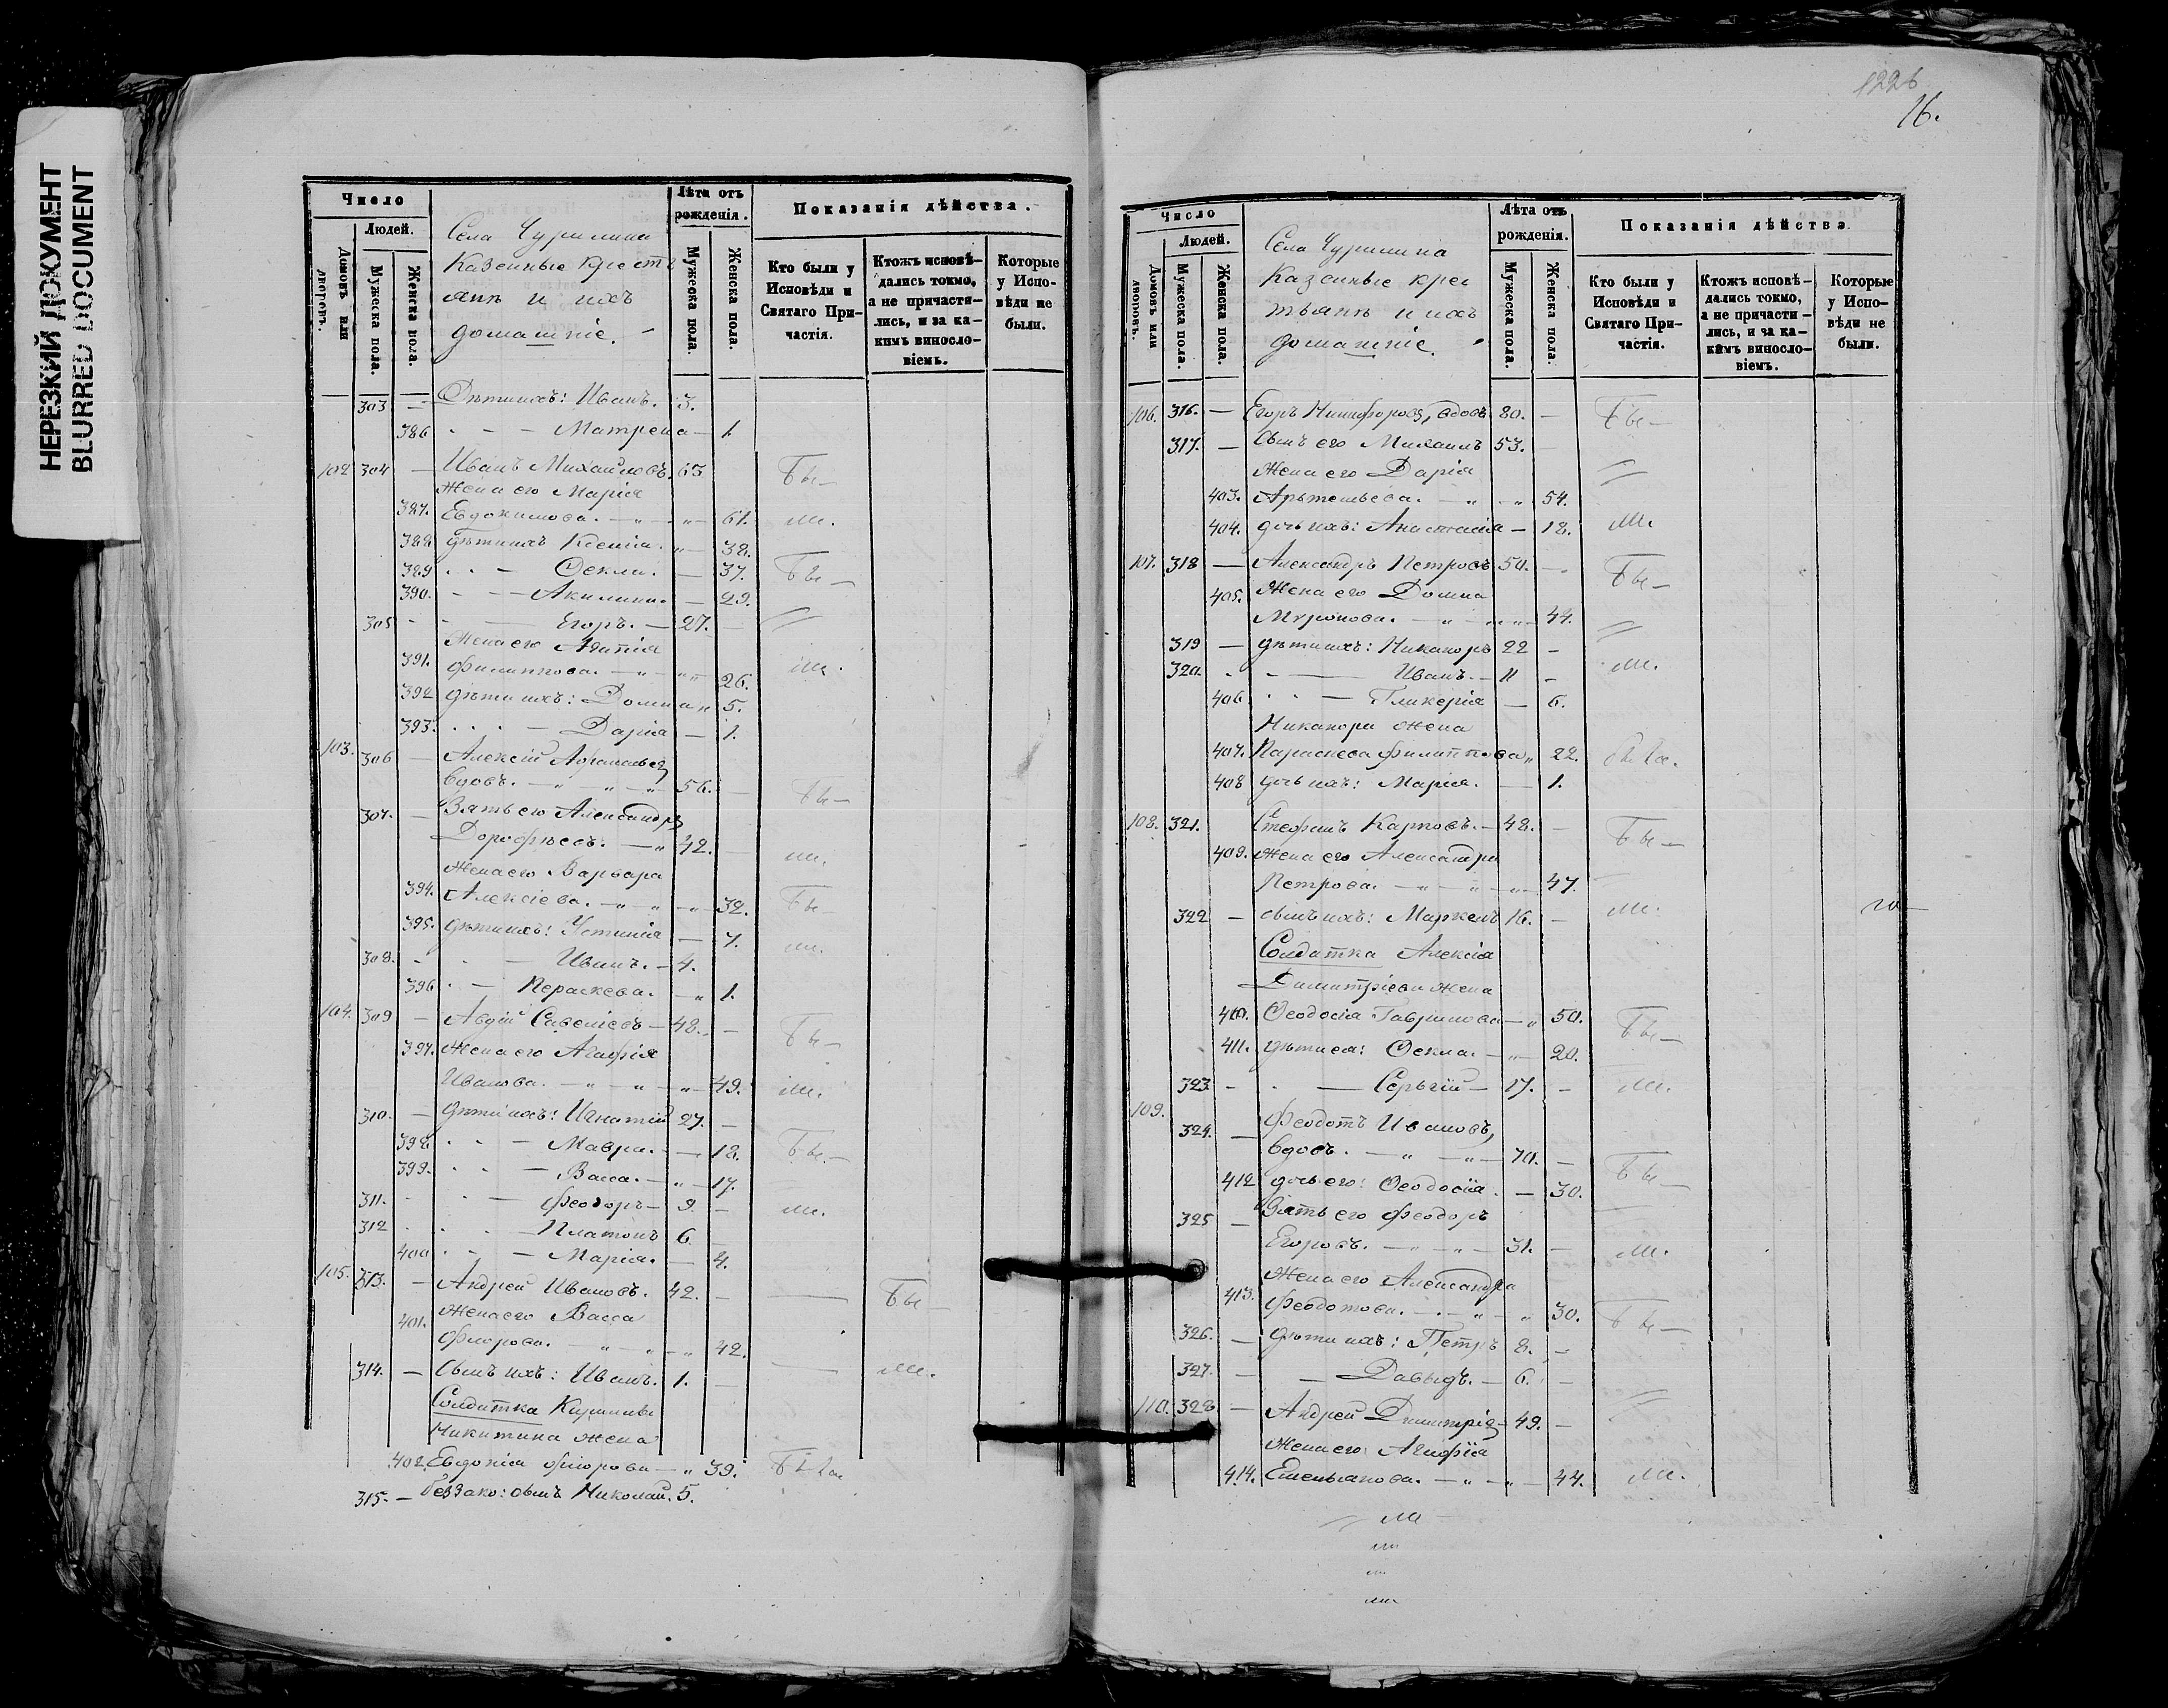 НЕРЕЗКИЙ ДОКУМЕНТ
BLURRED DOCUMENT
Число
Людей.
Домовъ или дворовъ.
Мужеска пола.
Женска пола.
Села Чурилина
Казенные крестъ
янъ и ихъ
домашніе.
Лѣта отъ рожденія.
Мужеска пола.
Женска пола.
Показанія дѣйства.
Кто были у Исповѣди и Святаго Причастія.
Ктожъ исповѣдались токмо, а не причастились, и за какимъ винословіемъ.
Которые у Исповѣди не были.
303 — Дѣти ихъ: Иванъ. 3.
386 — Матрена — 1.
102 304 — Иванъ Михайловъ. 63 Бы—
Жена его Марія
387. Евдокимова. — 61. ли.
388 дѣти ихъ Ксенія. — 38.
389 — Ѳекла. — 37. Бы—
390. — Акилина. — 29.
305 — Егоръ. — 27.
Жена его
391. Филиппова. — 26. ли.
392 дѣти ихъ: Домна 5.
393. — Дарія — 1.
103. 306 — Алексій Афанасьев
вдовъ. — 56. Бы—
307. — Зять его Александръ
Дорофѣевъ. — 42. ли.
Жена его Варвара
394. Алексіева. — 32. Бы—
395. дѣти ихъ: Устинія — 7. ли.
308. — Иванъ. — 4.
396 — Параскева. — 1.
104. 309 — Авдій Савеліевъ — 48. — Бы—
397. Жена его Агафія
Иванова. — 49. ли.
310. — дѣти ихъ: Игнатій 27. —
398. — Мавра. — 18. Бы—
399. — Васса. — 17.
311. — Феодоръ — 9. — ли.
312 — Платонъ 6.
400 — Марія. — 4.
105. 313. — Андрей Ивановъ. 42. — Бы—
401. Жена его Васса
Флорова. — 42.
314. — Сынъ ихъ: Иванъ. 1. — ли.
Солдатка Кирилы
Никитина жена
402. Евдокія Флорова — 39. Была
315. — беззако: сынъ Николай. 5.
1226
16.
Число
Людей.
Домовъ или дворовъ.
Мужеска пола.
Женска пола.
Села Чурилина
Казенные крес
тьянъ и ихъ
домашніе.
Лѣта отъ рожденія.
Мужеска пола.
Женска пола.
Показанія дѣйства.
Кто были у Исповѣди и Святаго Причастія.
Ктожъ исповѣдались токмо, а не причастились, и за какимъ винословіемъ.
Которые у Исповѣди не были.
106. 316. — Егоръ Никифоровъ, вдовъ 80. — Бы—
317. — Сынъ его Михаилъ 53.
Жена его Дарія
403. Артемьева. — 54.
404. дочь ихъ: Анастасія — 18. ли.
107. 318 — Александръ Петровъ 50. — Бы—
405. Жена его Домна
Миронова. — 44.
319 — дѣти ихъ: Никаноръ 22 —
320. — Иванъ. — 11 — ли.
406 — Гликерія — 6.
Никанора жена
407. Параскева Филиппова 22. была.
408 дочь ихъ: Марія. — 1.
108. 321. Стефанъ Карповъ. — 48. — Бы—
409. Жена его Александра
Петрова. — 47.
322 — сынъ ихъ: Маркелъ 16. — ли.
Солдатка Алексія
Димитріева жена
410. Ѳеодосія Гаврилова — 50. Бы—
411. дѣти ея: Ѳекла. — 20.
323 — Сергій — 17. — ли.
109.
324. — Феодотъ Ивановъ,
вдовъ. — 70. —
412 дочь его: Ѳеодосія. — 30. Бы—
325 — Зять его Феодоръ
Егоровъ. — 31. — ли.
Жена его Александра
413. Феодотова. — 30. Бы—
326. — дѣти ихъ: Петръ 8. —
327. — Давыдъ. — 6. —
110. 328 — Андрей Димитріев — 49. —
Жена его Агафія
414. Емельянова. — 44. ли.
ли
ли
ли
ли